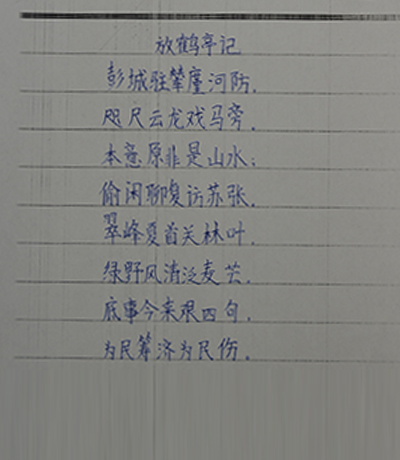 放鹤亭记
彭城驻辇廑河防.
咫尺云龙戏马旁.
本意原非是山水;
偷闲聊复访苏张.
翠峰夏首关林叶.
绿野风清泛麦芒.
底事今来艰四句.
为民筹济为民伤.